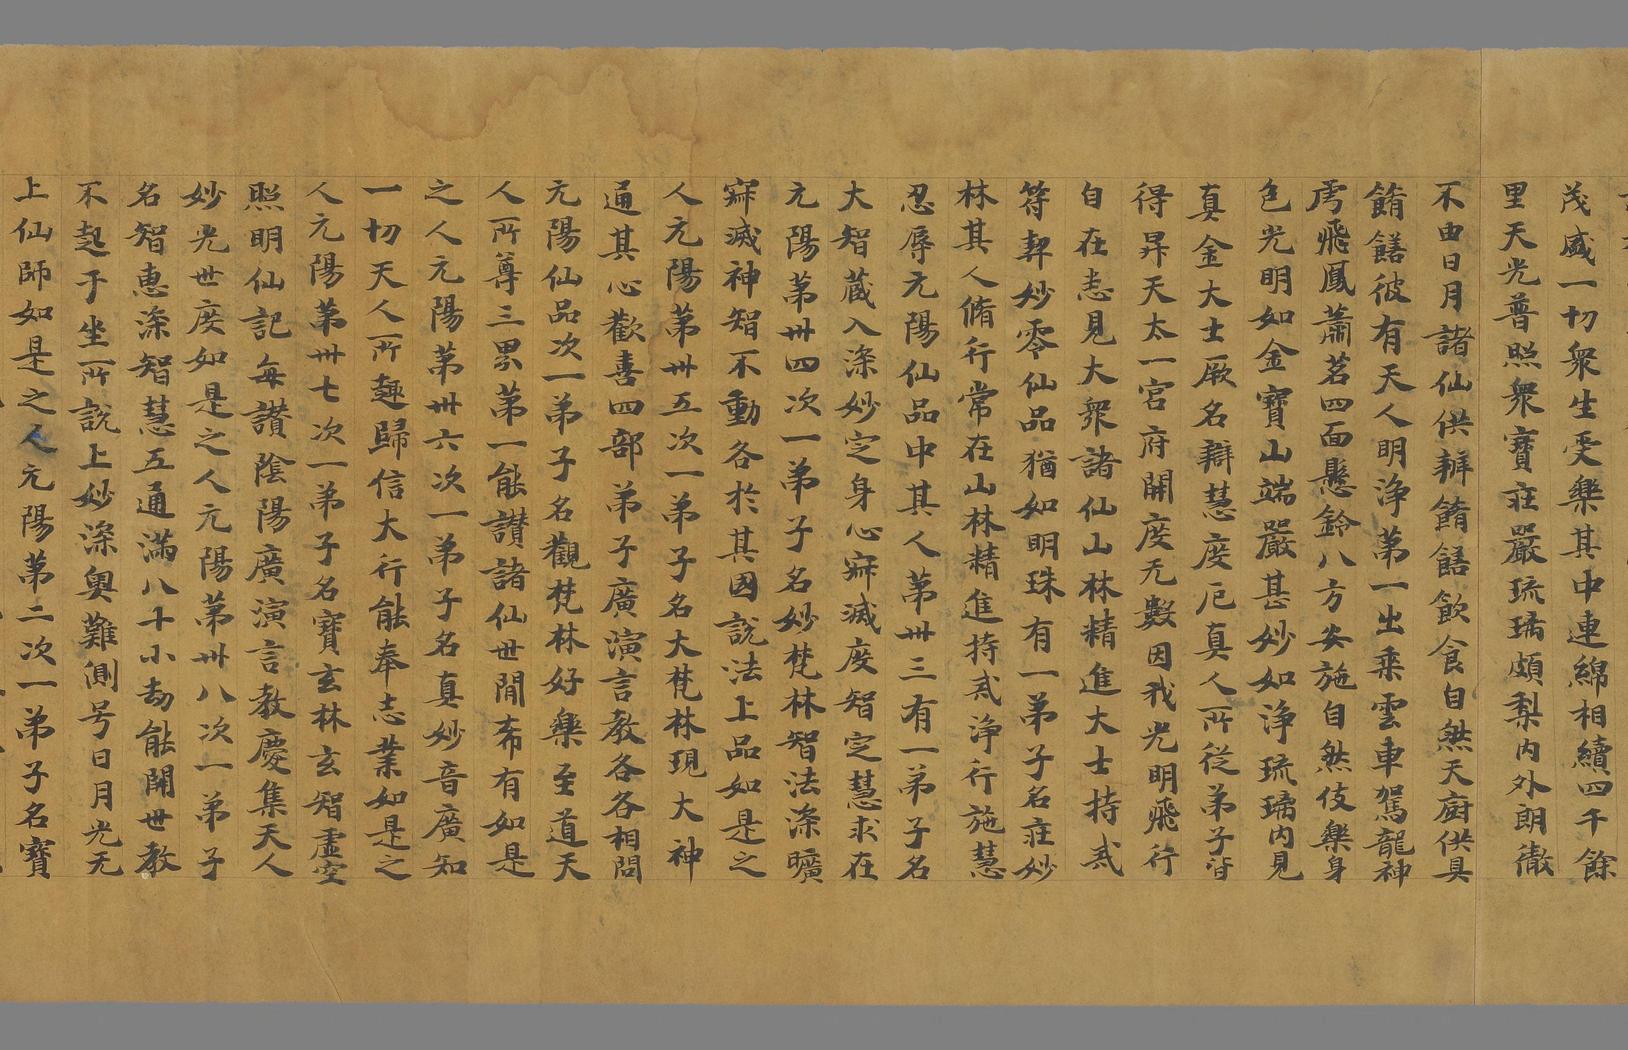 茂盛一切衆生受樂其中連綿相續四千餘
里天光普照衆寶莊嚴琉璃頗梨内外朗徹
不由日月諸仙供辦餚饍飲食自然天廚供具
餚饍彼有天人明淨第一出乘雲車駕龍神
虎飛鳳蕭茗四面懸鈴八方安施自然伎樂身
色光明如金寶山端嚴甚妙如淨琉璃内見
真金大士厥名辯慧度厄真人所從弟子皆
得昇天太一宮府開度无數因我光明飛行
自在恚見大衆諸仙山林精進大士持戒
符契妙零仙品猶如明珠有一弟子名莊妙
林其人脩行常在山林精進持戒淨行施慧
忍辱元陽仙品中其人第卌三有一弟子名
大智蔵入深妙定身心寂滅度智定慧求在
元陽第卌四次一弟子名妙梵林智法深曠
寂滅神智不動各於其國説法上品如是之
人元陽第卌五次一弟子名大梵林現大神
通其心歡喜四部弟子廣演言教各各相問
元陽仙品次一弟子名觀梵林好樂至道天
人所尊三界第一能讃諸仙世間希有如是
之人元陽第卌六次一弟子名真妙音廣知
一切天人所趣歸信大行能奉志業如是之
人元陽第卌七次一弟子名寶玄林玄智虛空
照明仙記每讃陰陽廣演言教慶集天人
妙光世度如是之人元陽第卌八次一弟子
名智惠深智慧五通滿八十小劫能開世教
不起于坐所説上妙深奥難測号日月光无
上仙師如是之人元陽第二次一弟子名寶